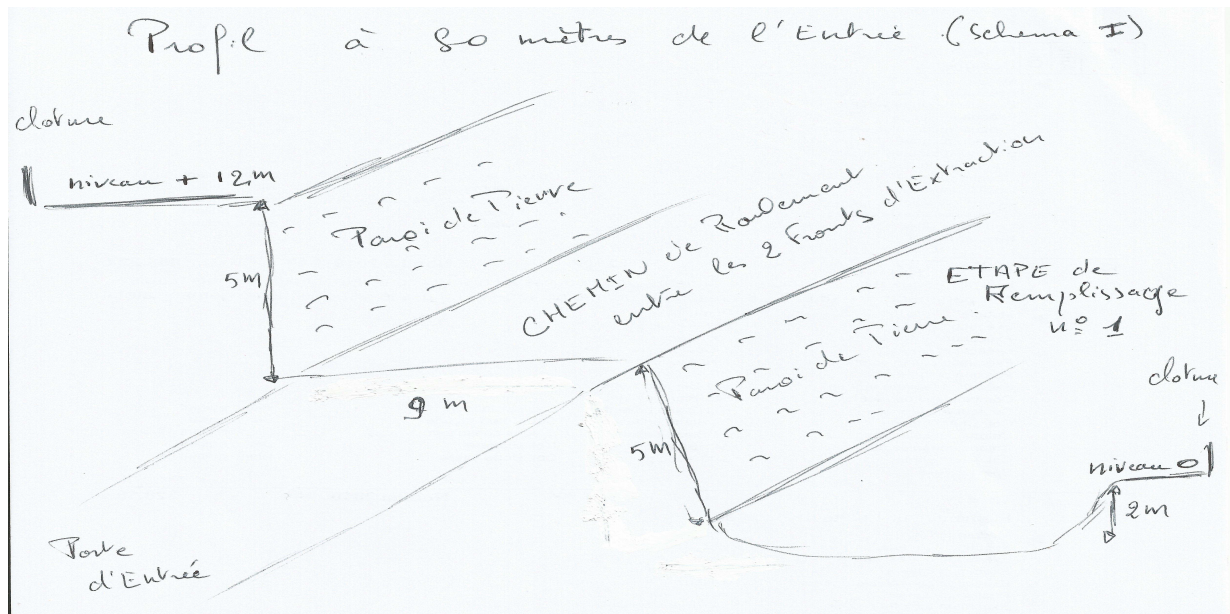 Profil à 80 mètres de l'Entrée (Schema I)
cloture
niveau + 12m
Paroi de Pierre
5m
CHEMIN de Roulement
entre les 2 Fronts d'Extraction
9 m
ETAPE de
Remplissage
nº 1
Paroi de Pierre
5m
cloture
niveau 0
2m
Porte
d'Entrée